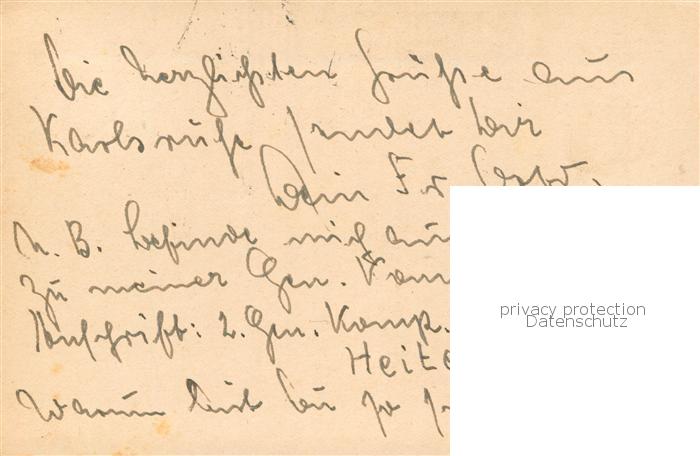 Die herzlichsten Grüße aus
Karlsruhe sendet Dir
Dein Fr
N. B. befinde mich
zu meiner Gen. Kom
Anschrift: 2. Gen. Komp.
Heit
Warum bist Du so
privacy protection
Datenschutz